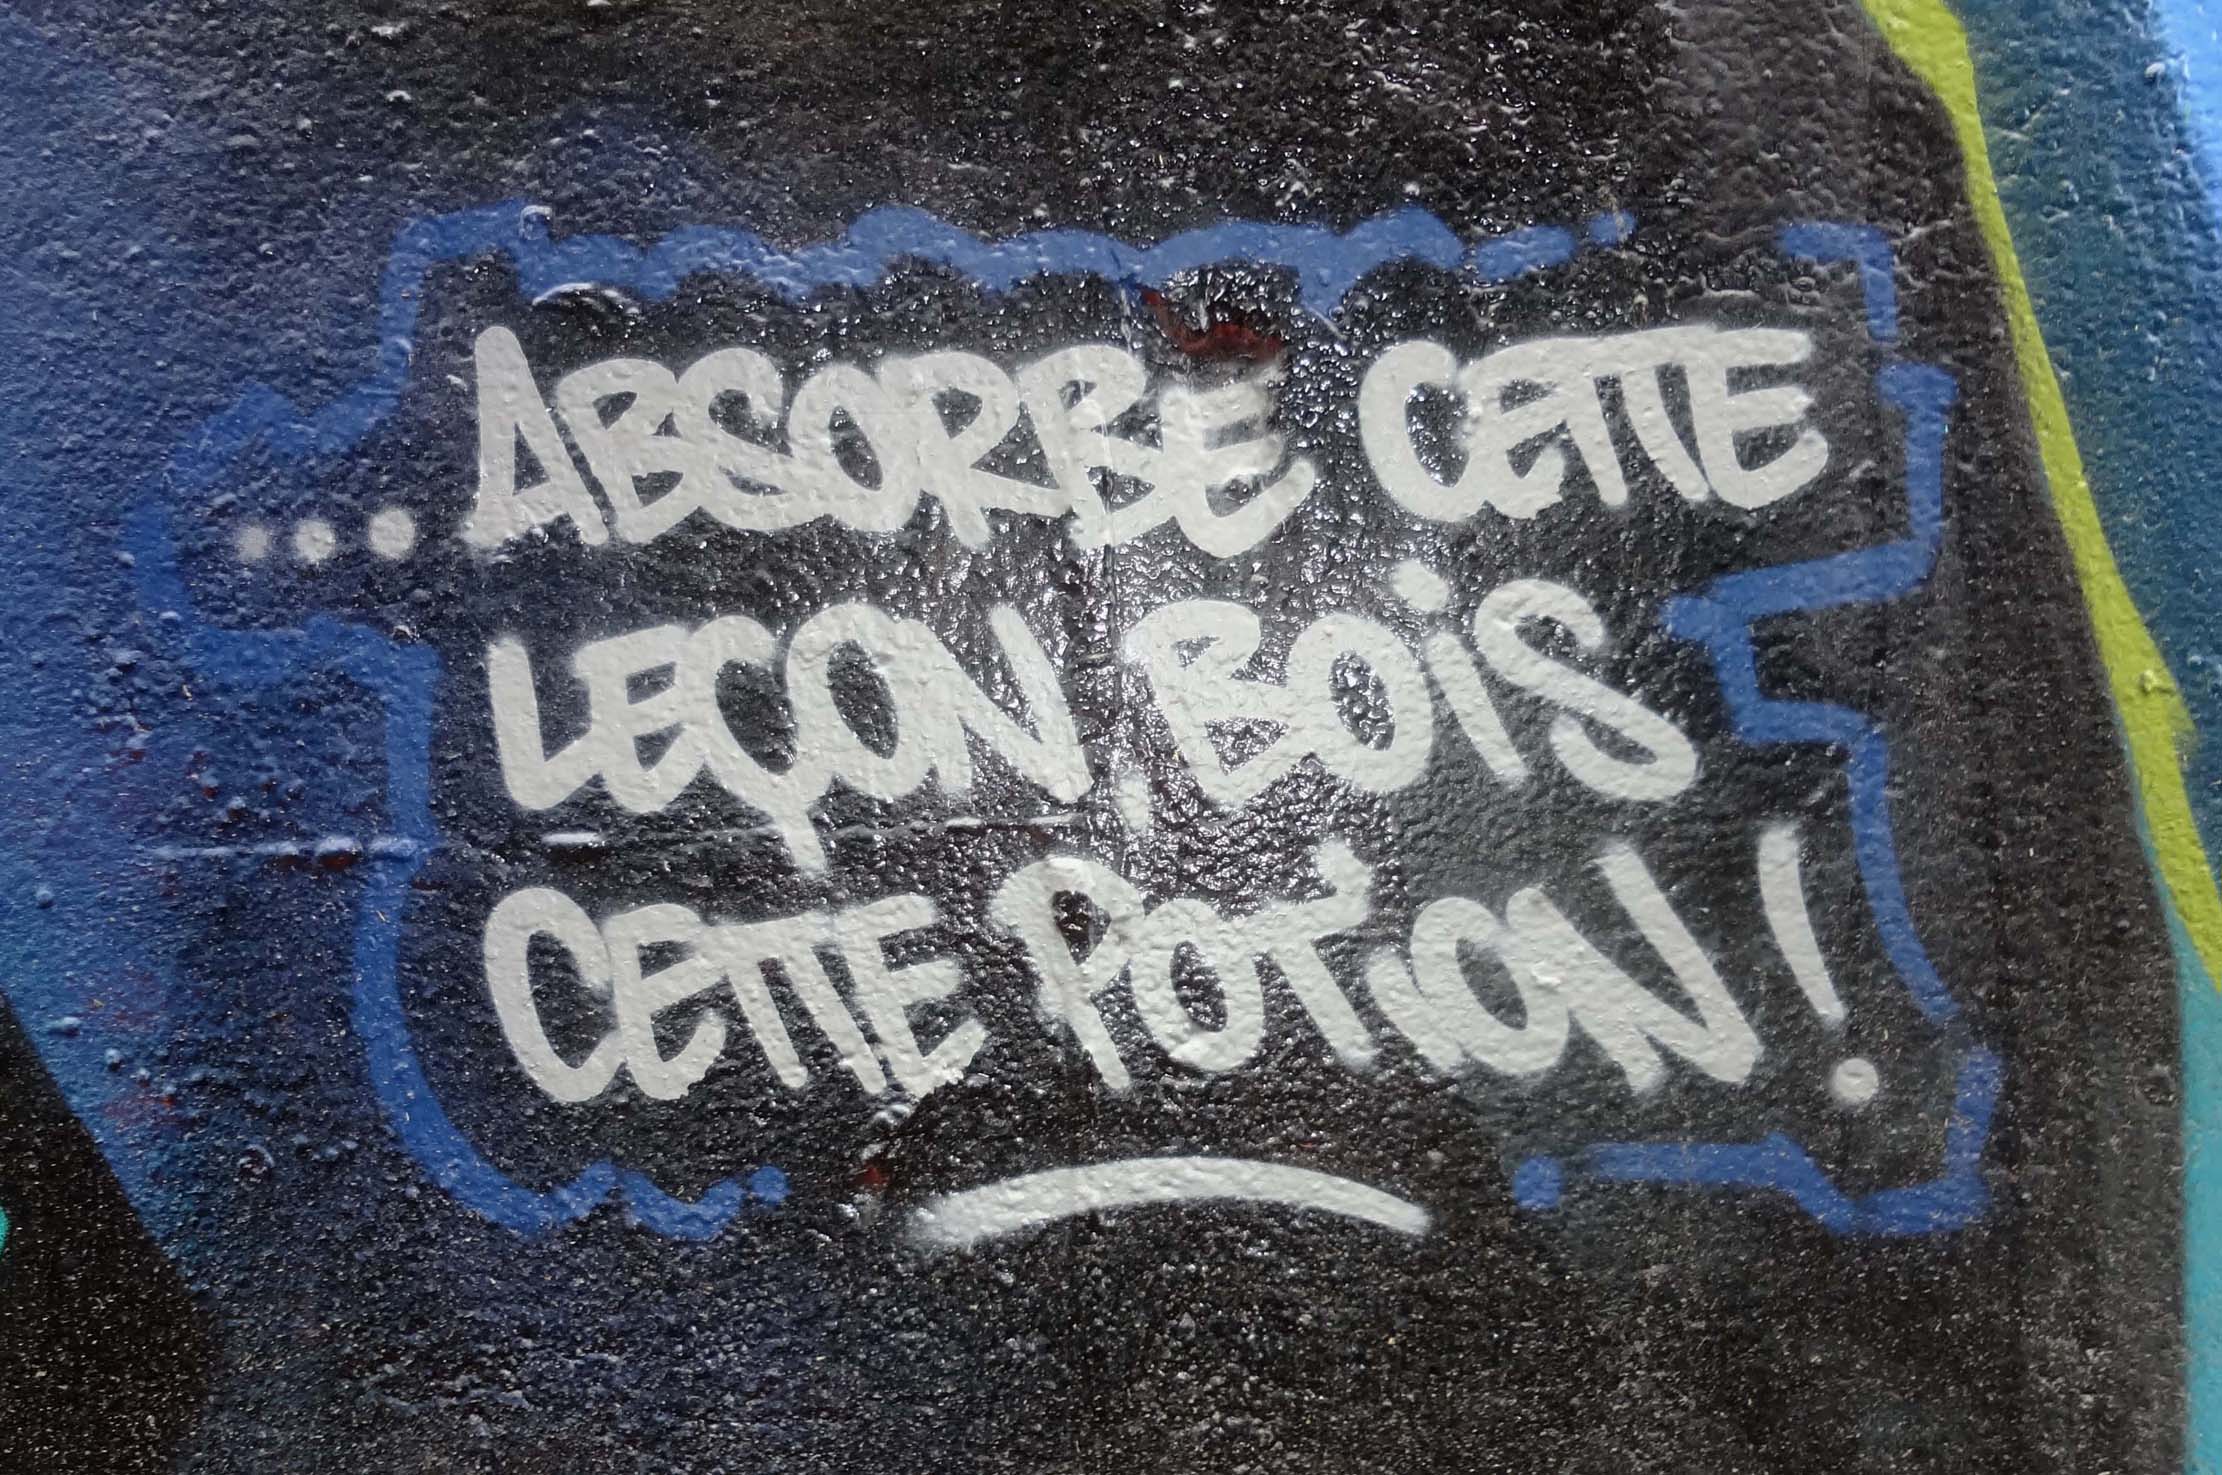 ...ABSORBE CETTE
LEÇON, BOiS
CETTE POTiON!